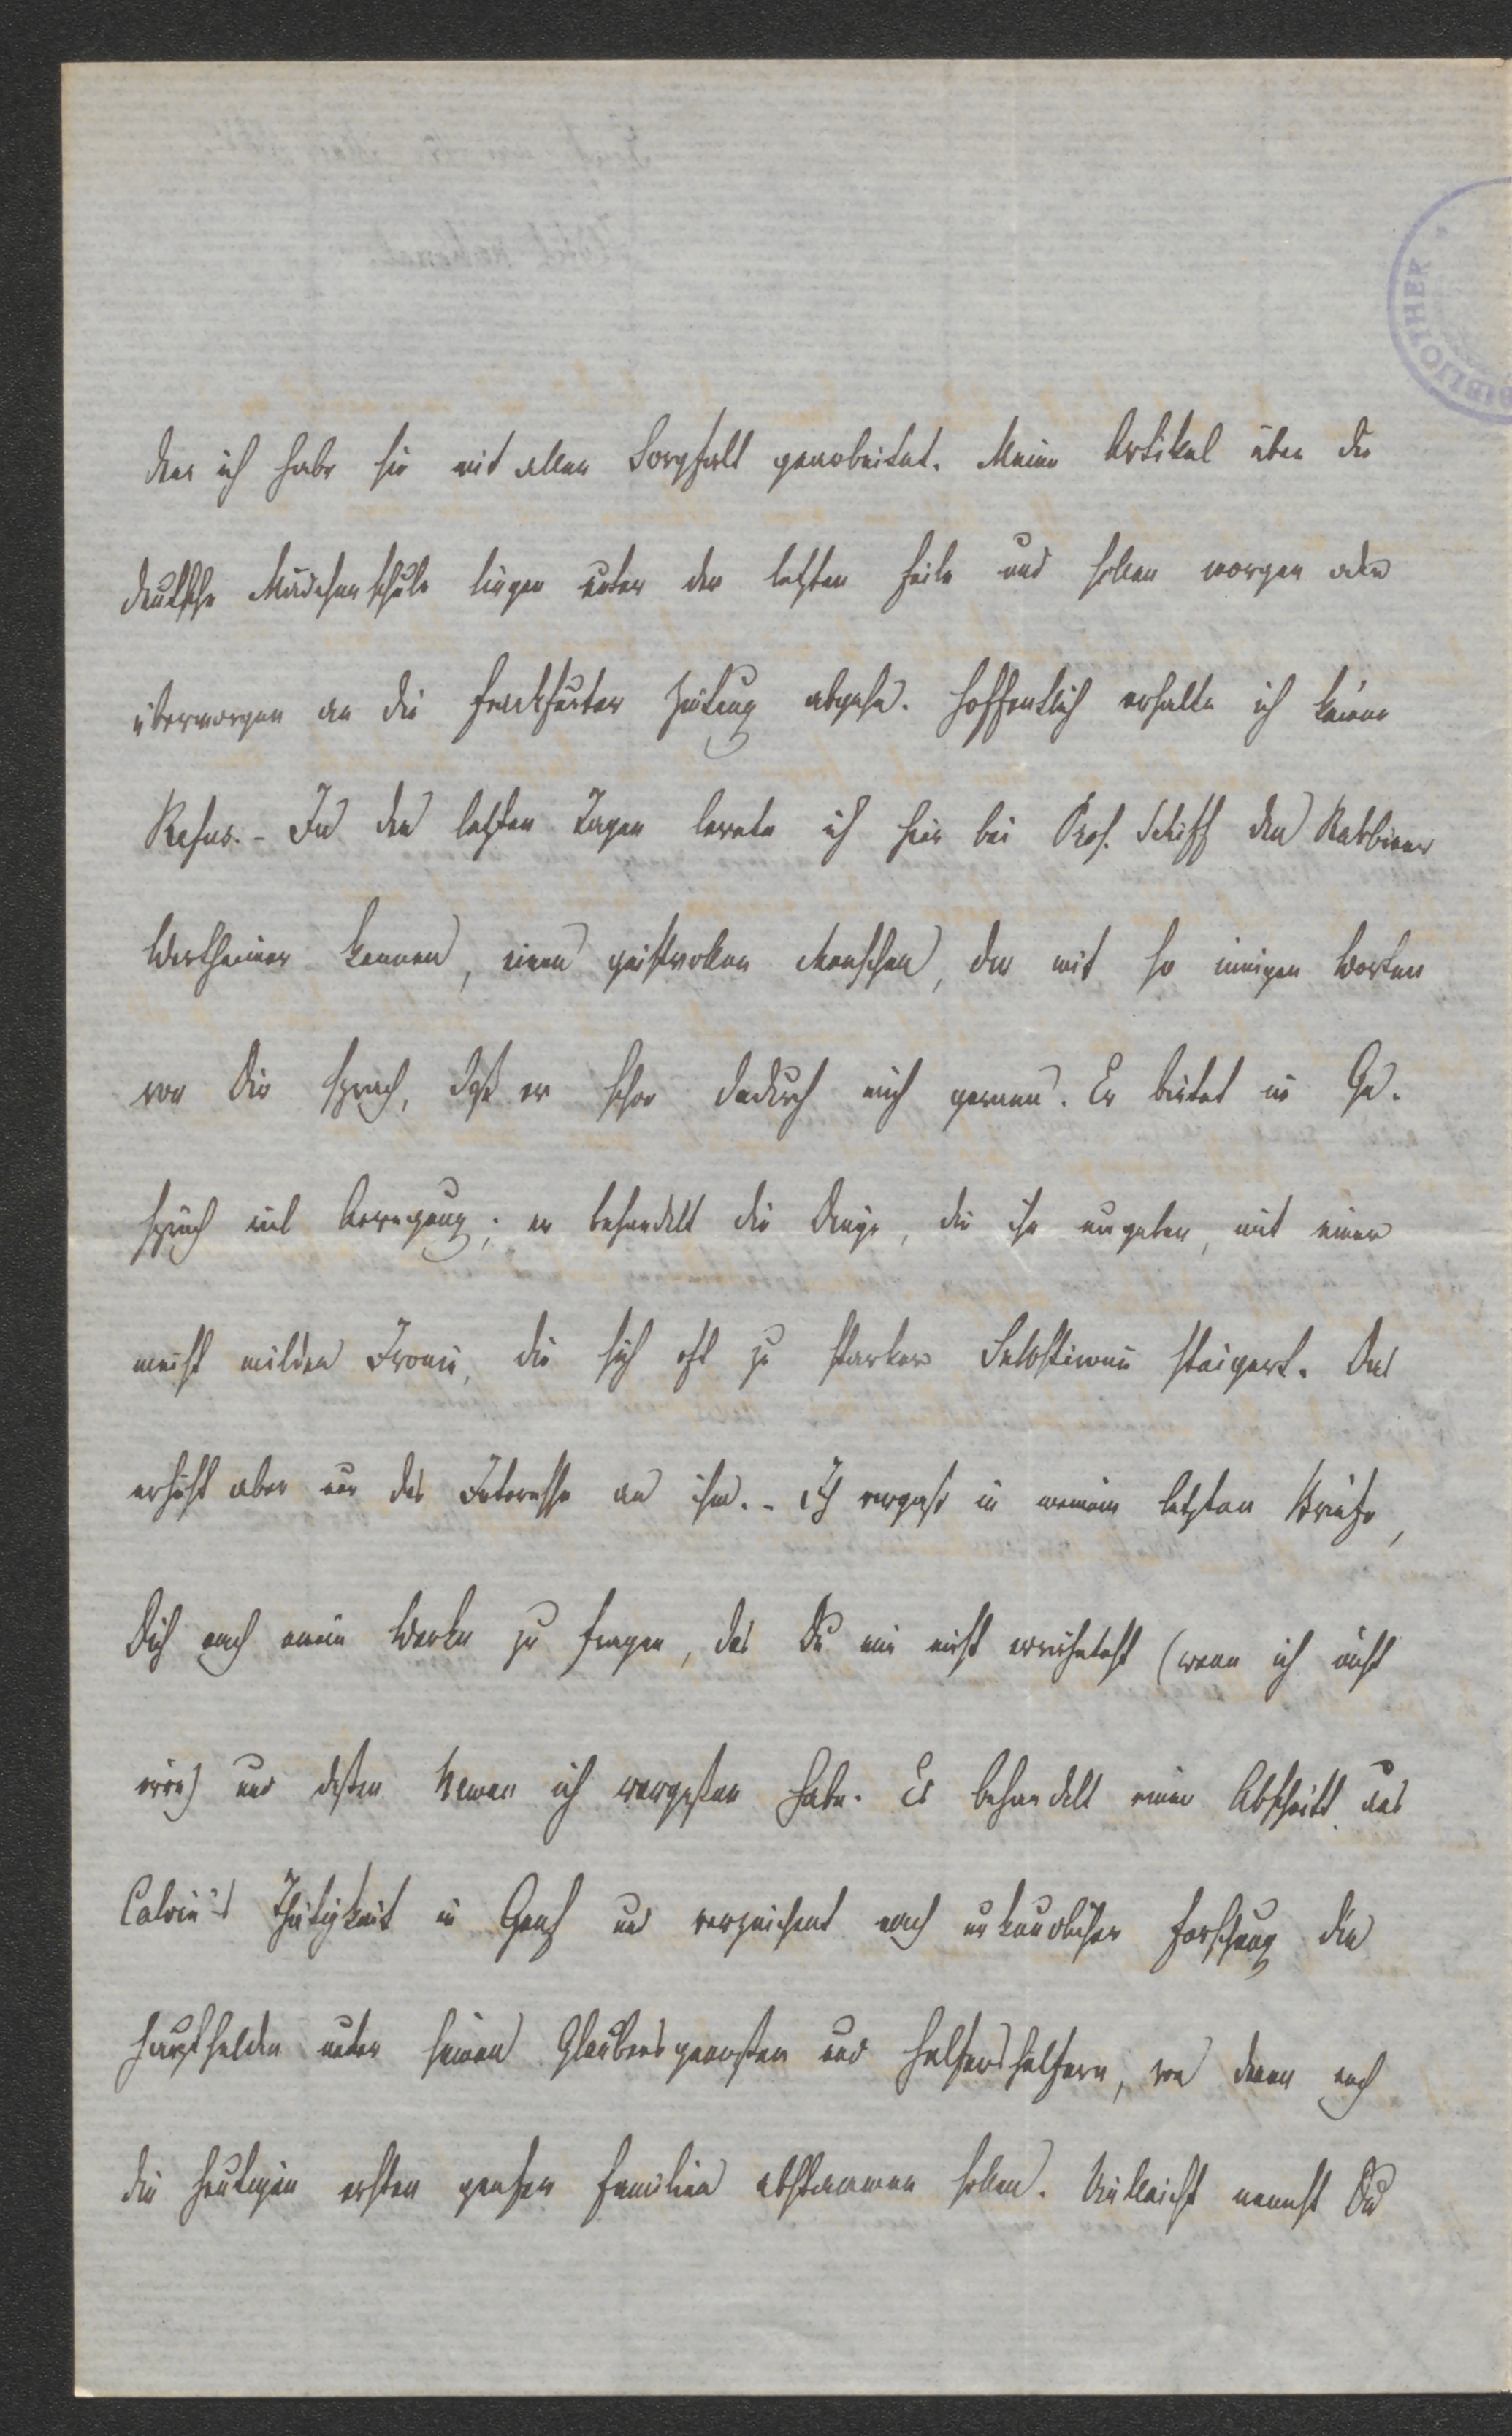 denn ich habe sie mit aller Sorgfalt gearbeitet. Meine Artikel über die
deutsche Mädchenschule liegen unter der letzten Feile und sollen morgen oder
übermorgen an die Frankfurter Zeitung abgehn. Hoffentlich erhalte ich keinen
Refus. - In den letzten Tagen lernte ich hier bei Prof. Schiff den Rabbiner
Wertheimer kennen, einen geistvollen Menschen, der mit so innigen Worten
von Dir sprach, daß er schon dadurch mich gewann. Er bietet im Ge-
spräch viel Anregung; er behandelt die Dinge, die ihn umgeben, mit einer
meist milden Ironie, die sich oft zu starker Selbstironie steigert. Das
erhöht aber nur das Interesse an ihm. - Ich vergaß in meinem letzten Briefe,
Dich nach einem Werke zu fragen, das Du mir einst erwähntest (wenn ich nicht
irre) und dessen Namen ich vergessen habe. Es behandelt einen Abschnitt aus
Calvin's Thätigkeit in Genf und verzeichnet nach urkundlicher Forschung die
Haupthelden unter seinen Glaubensgenossen und Helfershelfern, von denen noch
die heutigen ersten genfer Familien abstammen sollen. Vielleicht nennst Du
BIBLIOTHEK